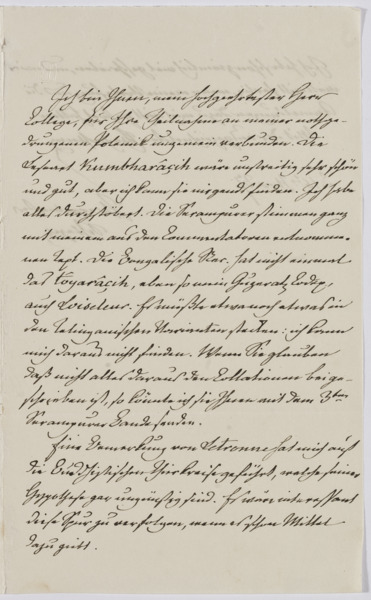 Ich bin Ihnen, mein hochgeehrtester Herr
College, für Ihre Theilnahme an meiner nothge-
drungenen Polemik ungemein verbunden. Die
Lesart Kumbharâçih wäre unstreitig sehr schön
und gut, aber ich kann sie nirgends finden. Ich habe
alles durchstöbert. Die Serampurer stimmen ganz
mit meinem aus den Commentatoren entnomme-
nen Text. Die Bengalische Rec. hat nicht einmal
das, eben so mein Guzeratz. Codex,
auch Loiseleur. Es müßte etwa noch etwas in
den Telinganischen Varianten stecken: ich kann
mich daraus nicht finden. Wenn Sie glauben
daß nicht alles daraus den Collationen beige-
schrieben ist, so könnte ich sie Ihnen mit dem 3ten
Serampurer Bande senden.
Eine Bemerkung von Letronne hat mich auf
die Buddhistischen Thierkreise geführt, welche seiner
Hypothese gar ungünstig sind. Es wäre interessant
diese Spur zu verfolgen, wenn es schon Mittel
dazu giebt.